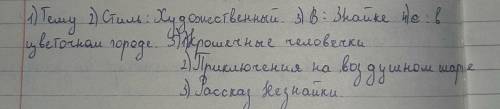 1) Тему 2) Стиль: Художественный. 3) В: Знайке 4) с: в
цветочном городе. 5) 1) Крошечные человечки
2) Приключения на воздушном шаре
3) Рассказ Незнайки.